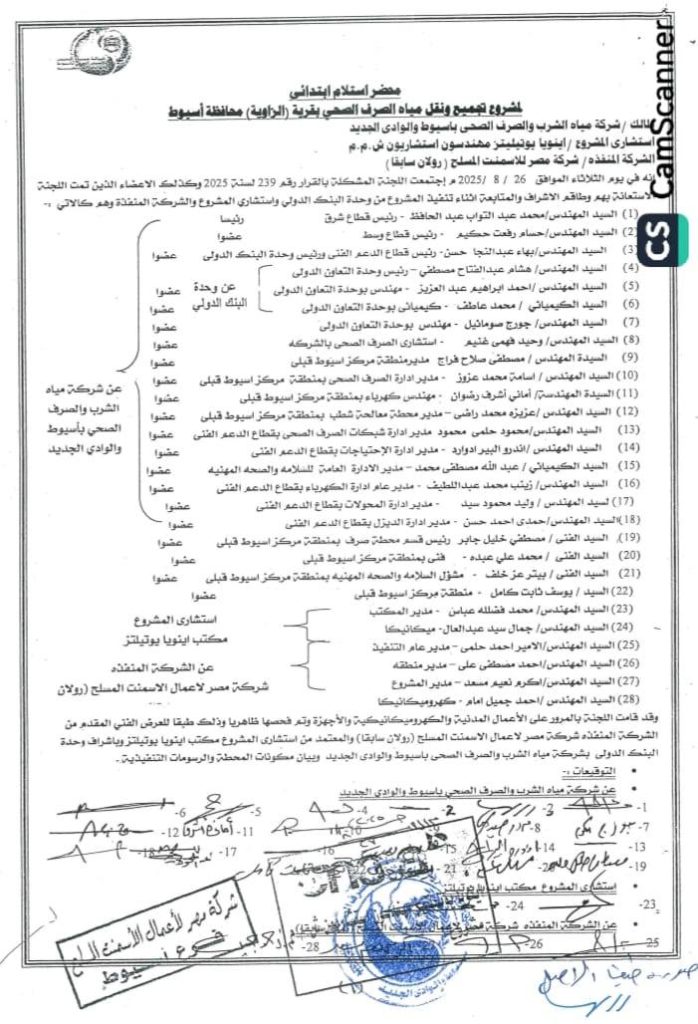 محضر استلام ابتدائى
لمشروع تجميع ونقل مياه الصرف الصحي بقرية (الزاوية) محافظة أسيوط
المالك / شركة مياه الشرب والصرف الصحى باسيوط والوادى الجديد
استشارى المشروع / اينويا يوتيليتز مهندسون استشاريون ش.م.م
الشركة المنفذه / شركة مصر للاسمنت المسلح ( رولان سابقا )
إنه في يوم الثلاثاء الموافق 26 / 8 / 2025م إجتمعت اللجنة المشكلة بالقرار رقم 239 لسنة 2025 وكذلك الاعضاء الذين تمت اللجنة
الاستعانة بهم وطاقم الاشراف والمتابعة اثناء تنفيذ المشروع من وحدة البنك الدولي واستشاري المشروع والشركة المنفذة وهم كالاتي :-
(1) السيد المهندس/ محمد عبد التواب عبد الحافظ - رئيس قطاع شرق رئيسا
(2) السيد المهندس/ حسام رفعت حكيم - رئيس قطاع وسط عضوا
(3) السيد المهندس/ بهاء عبدالنجا حسن- رئيس قطاع الدعم الفنى ورئيس وحدة البنك الدولى عضوا
(4) السيد المهندس/ هشام عبدالفتاح مصطفي – رئيس وحدة التعاون الدولى
(5) السيد المهندس/ احمد ابراهيم عبد العزيز - مهندس بوحدة التعاون الدولى عضوا
(6) السيد الكيميائي / محمد عاطف - كيميائى بوحدة التعاون الدولى عضوا
عن وحدة
البنك الدولي
(7) السيد المهندس/ جورج صومائيل - مهندس بوحدة التعاون الدولى عضوا
(8) السيد المهندس/ وحيد فهمى غنيم - استشارى الصرف الصحى بالشركه عضوا
(9) السيدة المهندس / مصطفى صلاح فراج مديرمنطقة مركز اسيوط قبلى عضوا
(10) السيد المهندس/ اسامة محمد عزوز - مدير ادارة الصرف الصحى بمنطقة مركز اسيوط قبلى عضوا
(11) السيدة المهندسة/ أماني أشرف رضوان - مهندس كهرباء بمنطقة مركز اسيوط قبلى عضوا
(12) السيد المهندس/ عزيزه محمد راضى – مدير محطة معالجة شطب بمنطقة مركز أسيوط قبلى عضوا
(13) السيد المهندس/محمود حلمى محمود مدير ادارة شبكات الصرف الصحى بقطاع الدعم الفنى عضوا
(14) السيد المهندس/ اندرو البير ادوارد - مدير ادارة الإحتياجات بقطاع الدعم الفنى عضوا
(15) السيد الكيميائي / عبد الله مصطفى محمد – مدير الادارة العامة للسلامه والصحه المهنيه عضوا
(16) السيد المهندس/ زينب محمد عبداللطيف - مدير عام ادارة الكهرباء بقطاع الدعم الفنى عضوا
(17) لسيد المهندس / وليد محمود سيد - مدير ادارة المحولات بقطاع الدعم الفنى عضوا
(18) السيد المهندس/ حمدى احمد حسن - مدير ادارة الديزل بقطاع الدعم الفنى عضوا
عن شركة مياه
الشرب والصرف
الصحي بأسيوط
والوادي الجديد
(19) السيد الفنى / مصطفى خليل جابر رئيس قسم محطة صرف بمنطقة مركز اسيوط قبلى عضوا
(20) السيد الفنى / محمد علي عبده - فنى بمنطقة مركز اسيوط قبلى عضوا
(21) السيد الفنى / بيتر عز خلف - مشؤل السلامه والصحه المهنيه بمنطقة مركز اسيوط قبلى عضوا
(22) السيد / يوسف ثابت كامل - منطقة مركز أسيوط قبلى عضوا
(23) السيد المهندس/ محمد فضلله عباس - مدير المكتب
(24) السيد المهندس/ جمال سيد عبدالعال- ميكانيكا
استشارى المشروع
مكتب اينويا يوتيلتز
(25) السيد المهندس/ الامير احمد حلمى – مدير عام التنفيذ
(26) السيد المهندس/ احمد مصطفي على – مدير منطقه
(27) السيد المهندس/ اكرم نعيم مسعد - مدير المشروع
(28) السيد المهندس/ احمد جميل امام - كهروميكانيكا
عن الشركة المنفذه
شركة مصر لاعمال الاسمنت المسلح (رولان
وقد قامت اللجنة بالمرور على الأعمال المدنية والكهروميكانيكية والأجهزة وتم فحصها ظاهريا وذلك طبقا للعرض الفني المقدم من
الشركة المنفذه شركة مصر لأعمال الاسمنت المسلح (رولان سابقا) والمعتمد من استشارى المشروع مكتب اينويا يوتيليتز وباشراف وحدة
البنك الدولى بشركة مياه الشرب والصرف الصحى باسيوط والوادى الجديد وبيان مكونات المحطة والرسومات التنفيذية .
• التوقيعات :-
• عن شركة مياه الشرب والصرف الصحي باسيوط والوادي الجديد
1- 2- 3- 4- 5- 6-
7- جورج 8- 11- أماني أشرف 12-
13- 14- 15- 16- 17- 18-
19- 21-
استشاري المشروع مكتب اينويا يوتيلتز
23- 24-
عن الشركة المنفذه
25- 26- 28-
شركة مصر لأعمال الأسمنت المسلح
فرع أسيوط
والوادي الجديد
صورة طبق الاصل
CS CamScanner